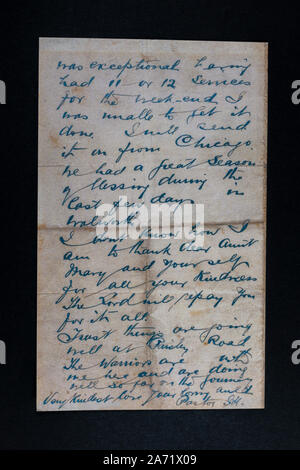 was exceptional having
had 11 or 12 services
for the week-end I
was unable to get it
done. I will send
it on from Chicago.
We had a great season
of blessing during the
last few days in
I don't know how I
am to thank dear Aunt
Mary and yourself
for all your kindness
The Lord will repay you
for it all.
Trust things are going
well at Road
The Warriors are with
me here and are doing
well so far on the journey
Very kindest love, your loving
Pastor
alamy
Image ID: 2A71X09
www.alamy.com